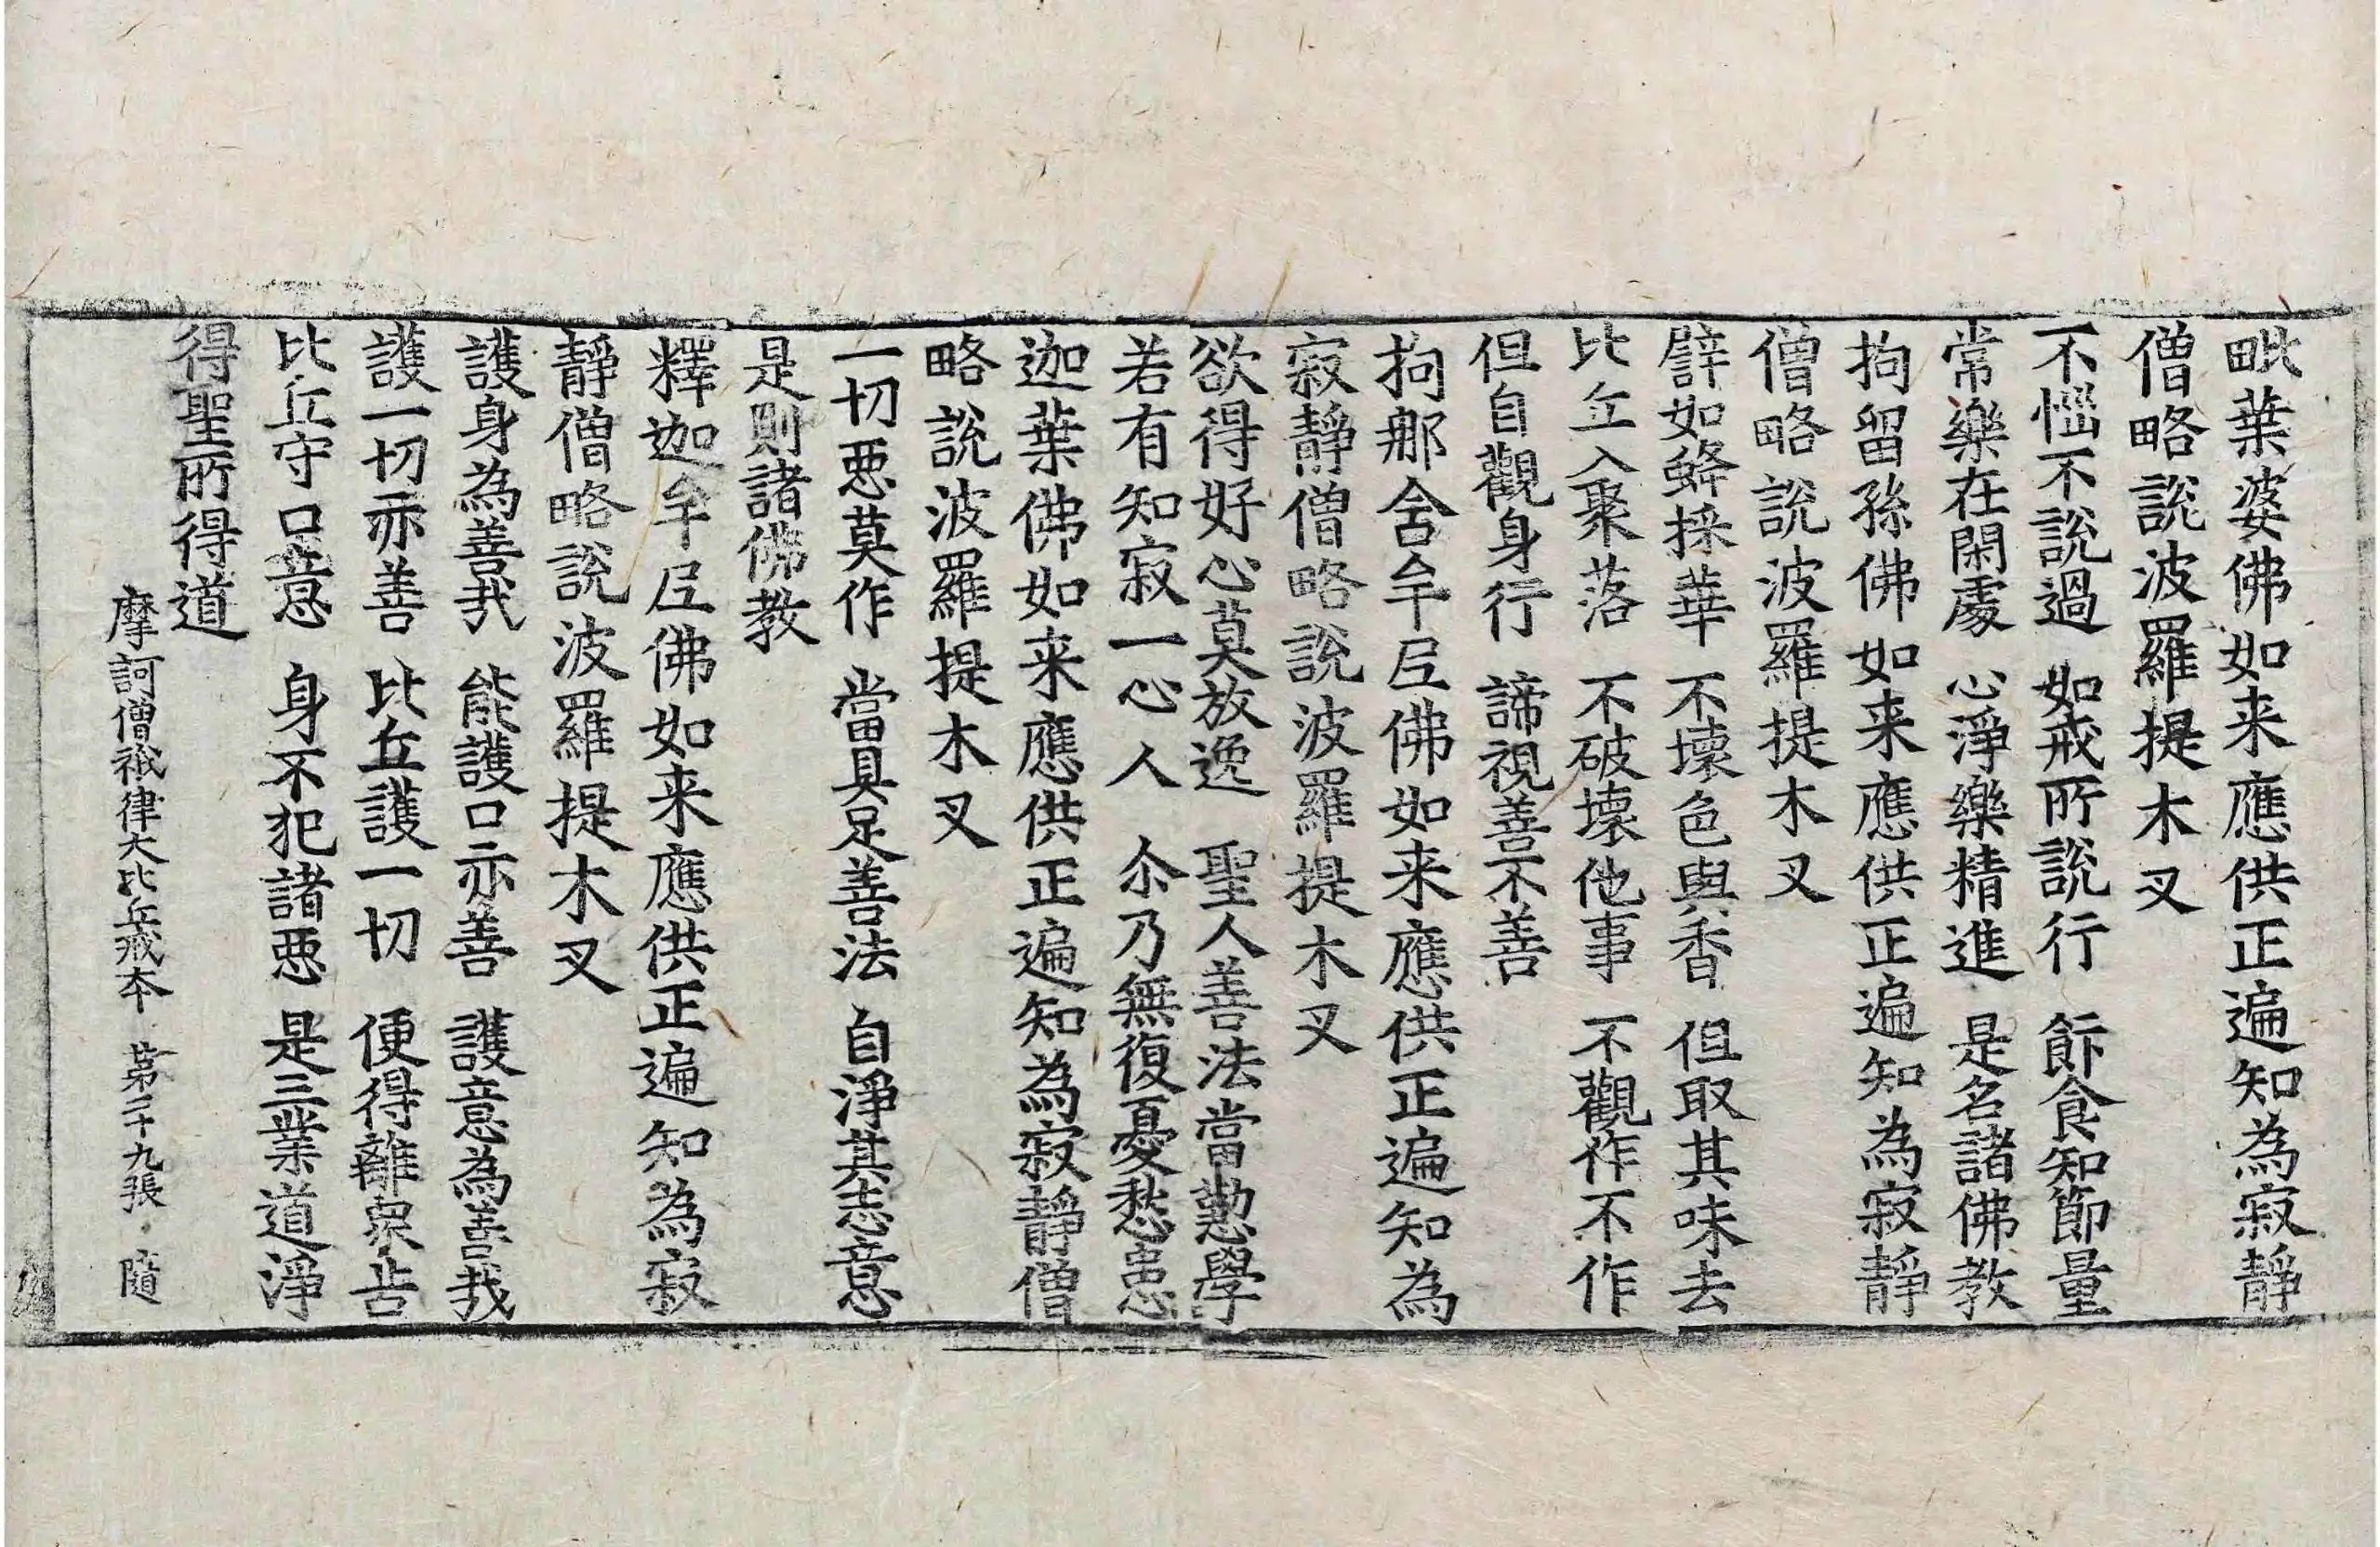 毗葉婆佛如来應供正遍知為寂靜
僧略說波羅提木叉
不惱不說過　如戒所說行　飯食知節量
常樂在閑處　心淨樂精進　是名諸佛教
拘留孫佛如来應供正遍知為寂靜
僧略說波羅提木叉
譬如蜂採華　不壞色與香　但取其味去
比丘入聚落　不破壞他事　不觀作不作
但自觀身行　諦視善不善
拘那舍牟尼佛如来應供正遍知為
寂靜僧略說波羅提木叉
欲得好心莫放逸　聖人善法當懃學
若有知寂一心人　尒乃無復憂愁患
迦葉佛如来應供正遍知為寂靜僧
略說波羅提木叉
一切惡莫作　當具足善法　自淨其志意
是則諸佛教
釋迦牟尼佛如来應供正遍知為寂
靜僧略說波羅提木叉
護身為善哉　能護口亦善　護意為善哉
護一切亦善　比丘護一切　便得離衆苦
比丘守口意　身不犯諸惡　是三業道淨
得聖所得道
摩訶僧祇律大比丘戒本　第二十九張　隨